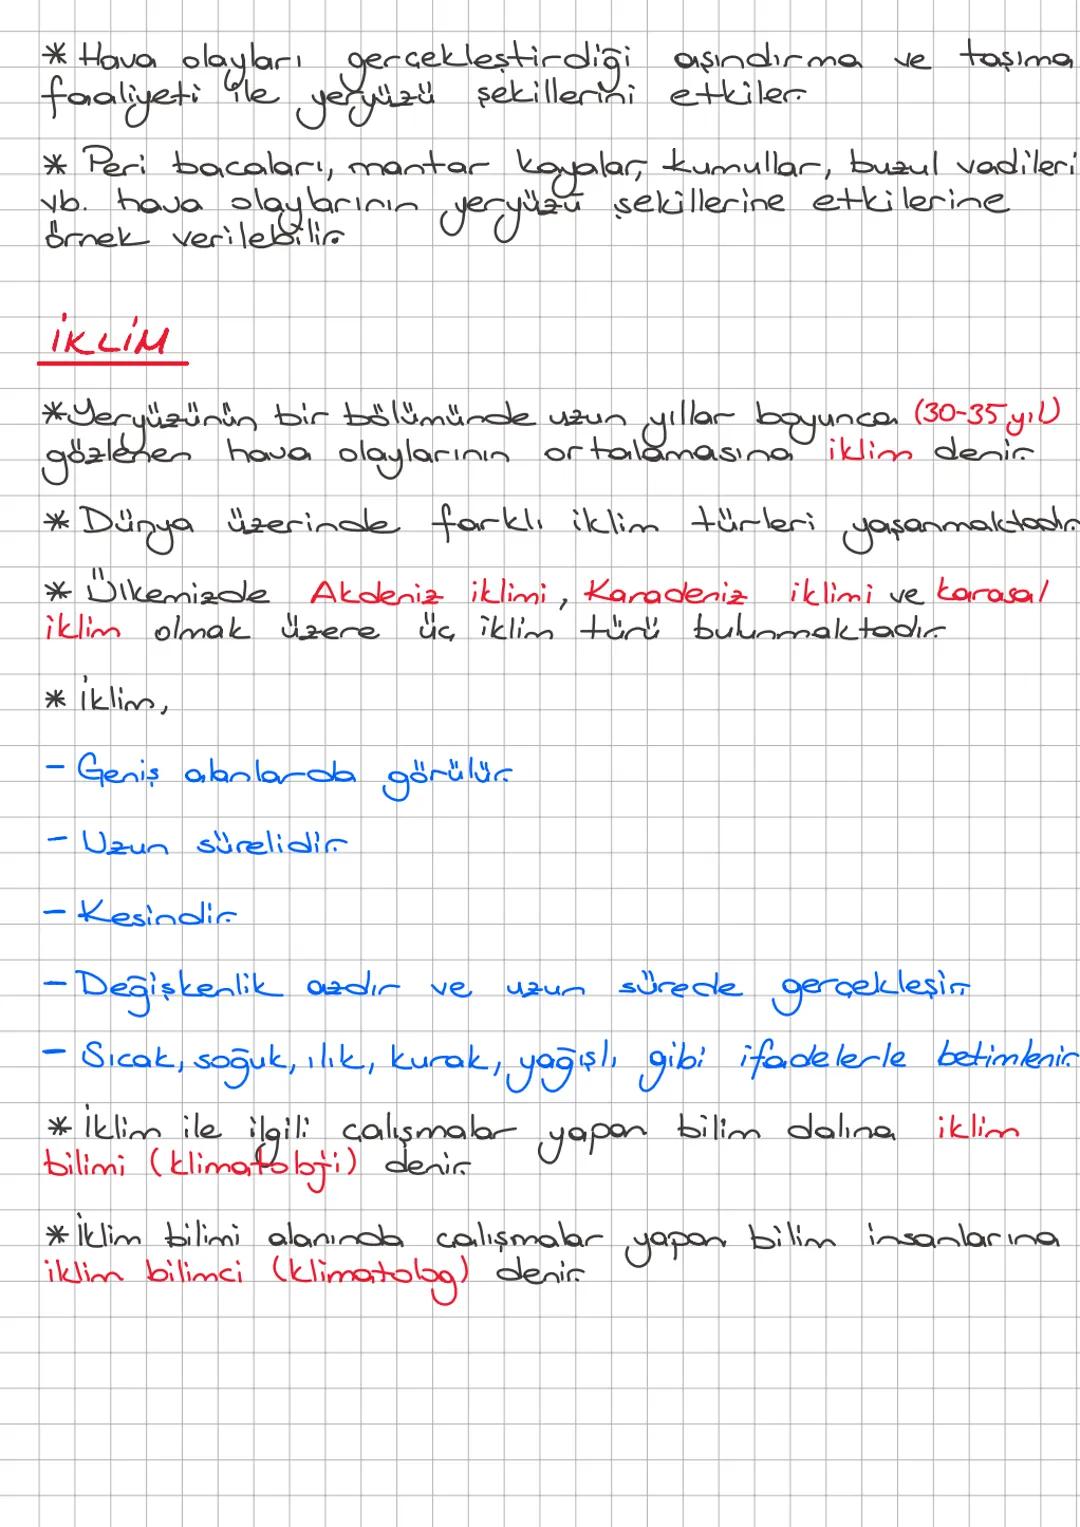 * Hava olayları gerçekleştirdiği aşındırma ve taşıma
faaliyeti ile yeryüzü şekillerini etkiler.
* Peri bacaları, mantar kayalar, kumullar, buzul vadileri
vb. hava olaylarının yeryüzü şekillerine etkilerine
örnek verilebilir.
İKLİM
* Yeryüzünün bir bölümünde uzun yıllar boyunca (30-35 yıl)
gözlenen hava olaylarının ortalamasına iklim denir.
* Dünya üzerinde farklı iklim türleri yaşanmaktadır.
* Ülkemizde Akdeniz iklimi, Karadeniz iklimi ve karasal
iklim olmak üzere üç iklim türü bulunmaktadır.
* İklim,
- Geniş alanlarda görülür.
- Uzun sürelidir.
- Kesindir.
- Değişkenlik azdır ve uzun sürede gerçekleşir.
- Sıcak, soğuk, ılık, kurak, yağışlı gibi ifadelerle betimlenir.
* İklim ile ilgili çalışmalar yapan bilim dalına iklim
bilimi (klimatoloji) denir.
* İklim bilimi alanında çalışmalar yapan bilim insanlarına
iklim bilimci (klimatolog) denir.